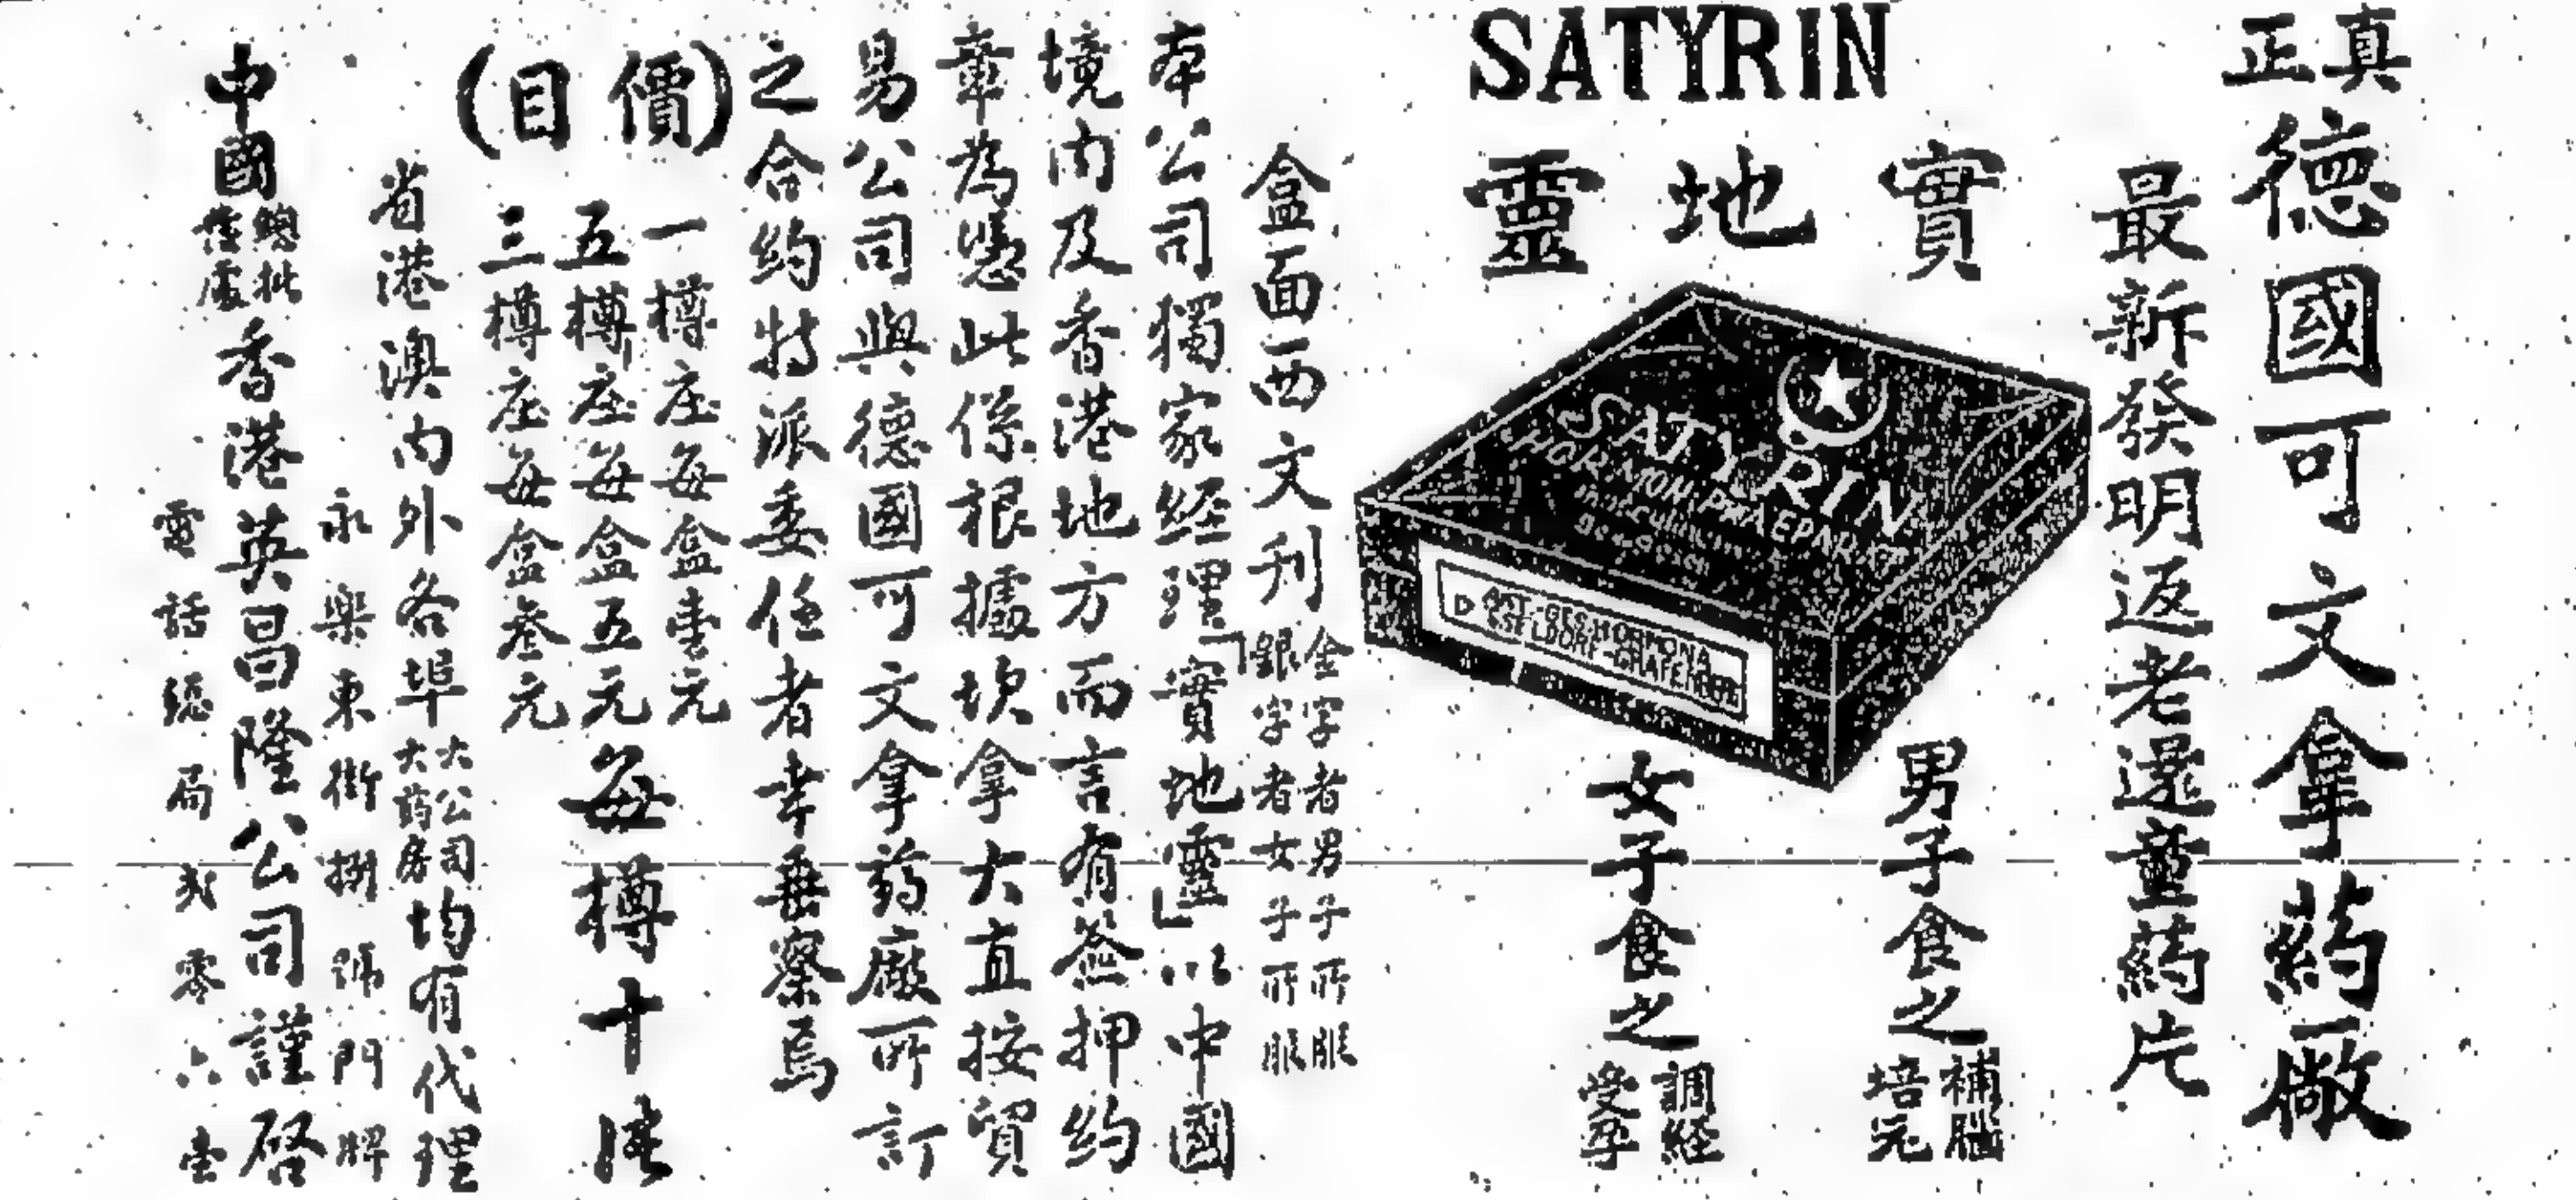 真正德國可文拿藥廠
最新發明返老還童藥片
SATYRIN
實地靈
SATYRIN
HORMON-PRAEPARAT
ACT.-GES.HORMONA
男子食之補腦培元
女子食之調經受孕
盒面西文刋金字者男子所服銀字者女子所服
本公司獨家經理「實地靈」以中國
境內及香港地方而言有簽押約
章為憑此係根據坎拿大直按貿
易公司與德國可文拿葯廠所訂
之合約特派委任者幸垂察焉
(價目)
一樽庄每盒壹元
五樽庄每盒五元
三樽庄每盒叁元
每樽十
省港澳內外各埠大公司大葯房均有代理
永樂東街捌號門牌
中國總批發處香港英昌隆公司謹啓
電話總局弍零六壹